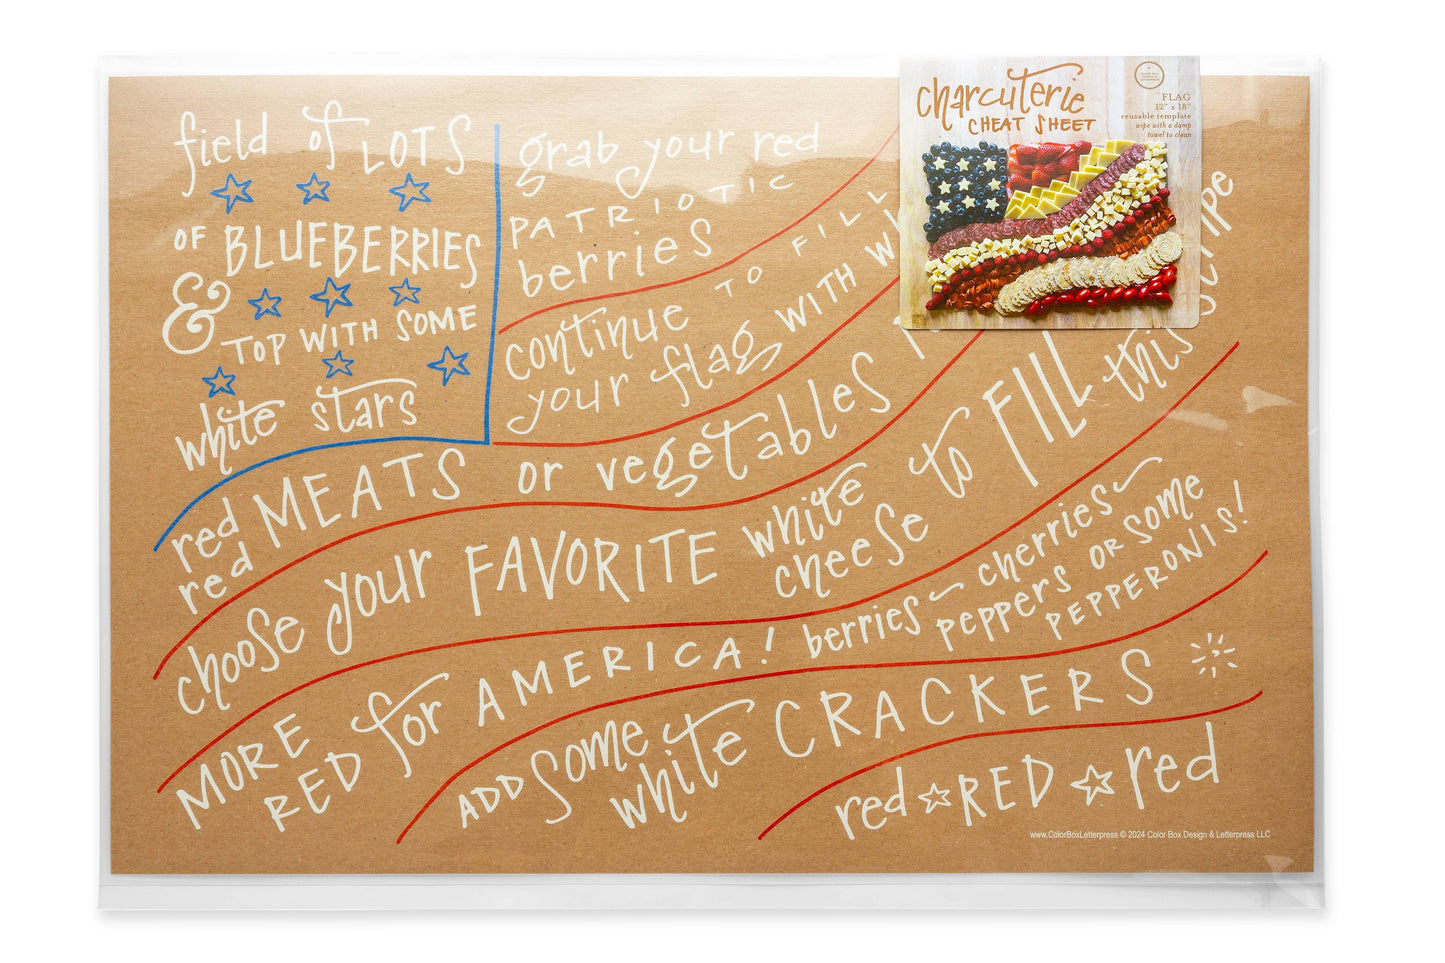 field of LOTS
OF BLUEBERRIES
& TOP WITH SOME
white stars
grab your red
PATRIOTIC
berries
continue TO FILL
your flag WITH
red MEATS or vegetables
red
choose your FAVORITE white
cheese to FILL this stripe
MORE
RED for AMERICA! berries ~ cherries ~
peppers OR SOME
PEPPERONIS!
ADD some
white CRACKERS
red ☆ RED ☆ red
www.ColorBoxLetterpress © 2024 Color Box Design & Letterpress LLC
charcuterie
CHEAT SHEET
FLAG
12" x 18"
reusable template
wipe with a damp
towel to clean